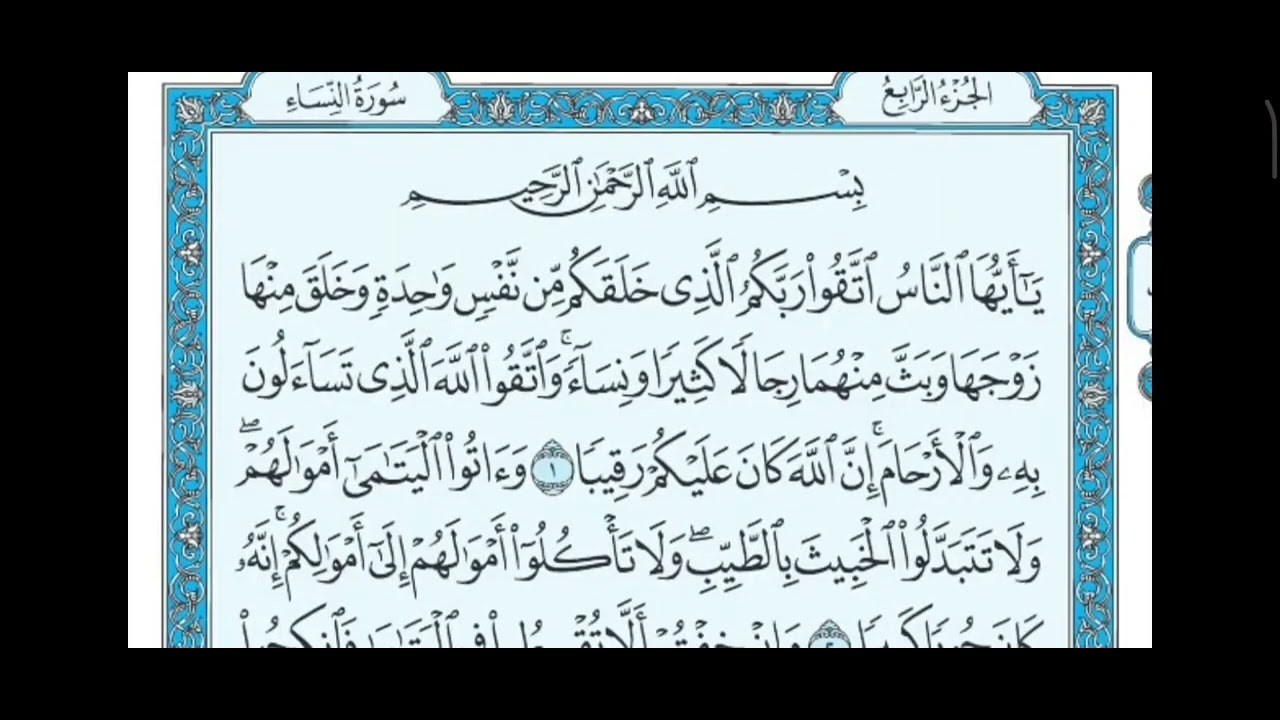 الجُزْءُ الرَّابِعُ
سُورَةُ النِّسَاءِ
بِسْمِ ٱللَّهِ ٱلرَّحْمَٰنِ ٱلرَّحِيمِ
يَٰٓأَيُّهَا ٱلنَّاسُ ٱتَّقُوا۟ رَبَّكُمُ ٱلَّذِى خَلَقَكُم مِّن نَّفْسٍ وَٰحِدَةٍ وَخَلَقَ مِنْهَا
زَوْجَهَا وَبَثَّ مِنْهُمَا رِجَالًا كَثِيرًا وَنِسَآءً ۚ وَٱتَّقُوا۟ ٱللَّهَ ٱلَّذِى تَسَآءَلُونَ
بِهِۦ وَٱلْأَرْحَامَ ۚ إِنَّ ٱللَّهَ كَانَ عَلَيْكُمْ رَقِيبًا ١ وَءَاتُوا۟ ٱلْيَتَٰمَىٰٓ أَمْوَٰلَهُمْ ۖ
وَلَا تَتَبَدَّلُوا۟ ٱلْخَبِيثَ بِٱلطَّيِّبِ ۖ وَلَا تَأْكُلُوٓا۟ أَمْوَٰلَهُمْ إِلَىٰٓ أَمْوَٰلِكُمْ ۚ إِنَّهُۥ